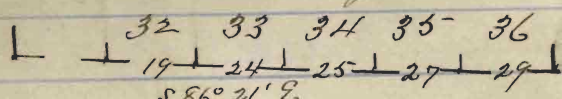 32 33 34 35 36
19 24 25 27 29
S 86° 21' E.